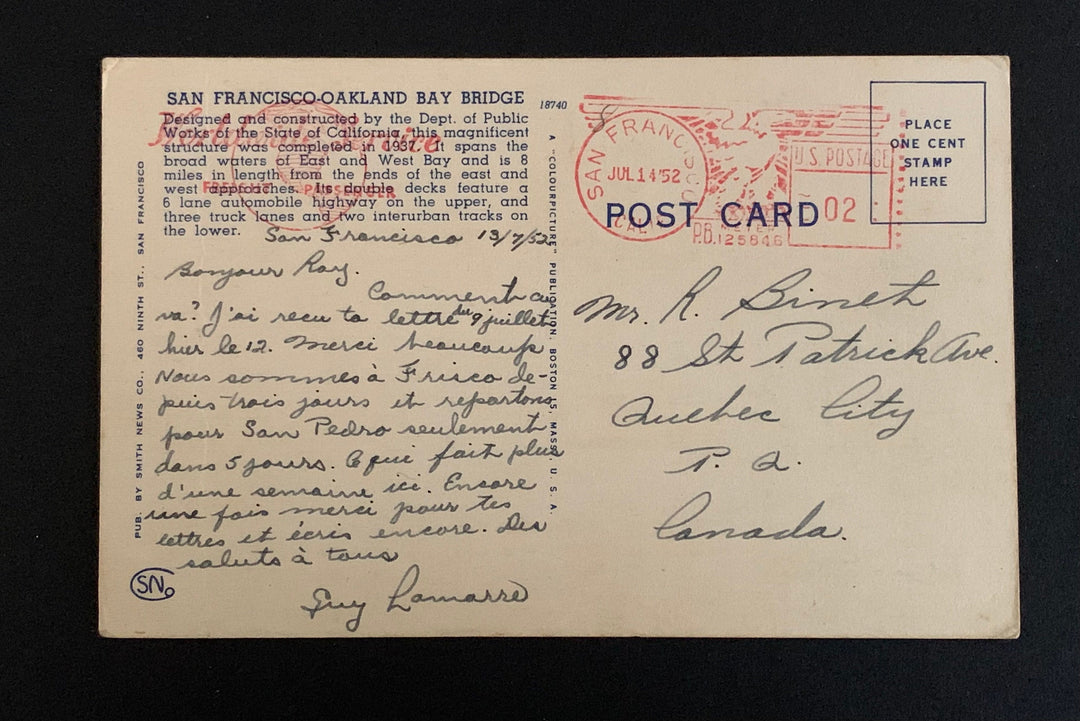 SAN FRANCISCO-OAKLAND BAY BRIDGE
Designed and constructed by the Dept. of Public
Works of the State of California, this magnificent
structure was completed in 1937. It spans the
broad waters of East and West Bay and is 8
miles in length from the ends of the east and
west approaches. Its double decks feature a
6 lane automobile highway on the upper, and
three truck lanes and two interurban tracks on
the lower.
San Francisco 13/7/52
Bonjour Ray.
Comment ca
va? J'ai recu ta lettre du 9 juillet
hier le 12. Merci beaucoup
Nous sommes à Frisco de-
puis trois jours et repartons
pour San Pedro seulement
dans 5 jours. Ce qui fait plus
d'une semaine ici. Encore
une fois merci pour tes
lettres et écris encore. Des
saluts à tous
Guy Lamarre
SN
PUB. BY SMITH NEWS CO., 460 NINTH ST., SAN FRANCISCO
18740
A "COLOURPICTURE" PUBLICATION, BOSTON 15, MASS., U. S. A.
FREIGHT PASSENGER
SAN FRANCISCO
JUL 14 '52
CALIF.
U.S. POSTAGE
02
P.B. METER
125846
POST CARD
PLACE
ONE CENT
STAMP
HERE
Mr. R. Binet
88 St Patrick Ave.
Quebec City
P. Q.
Canada.